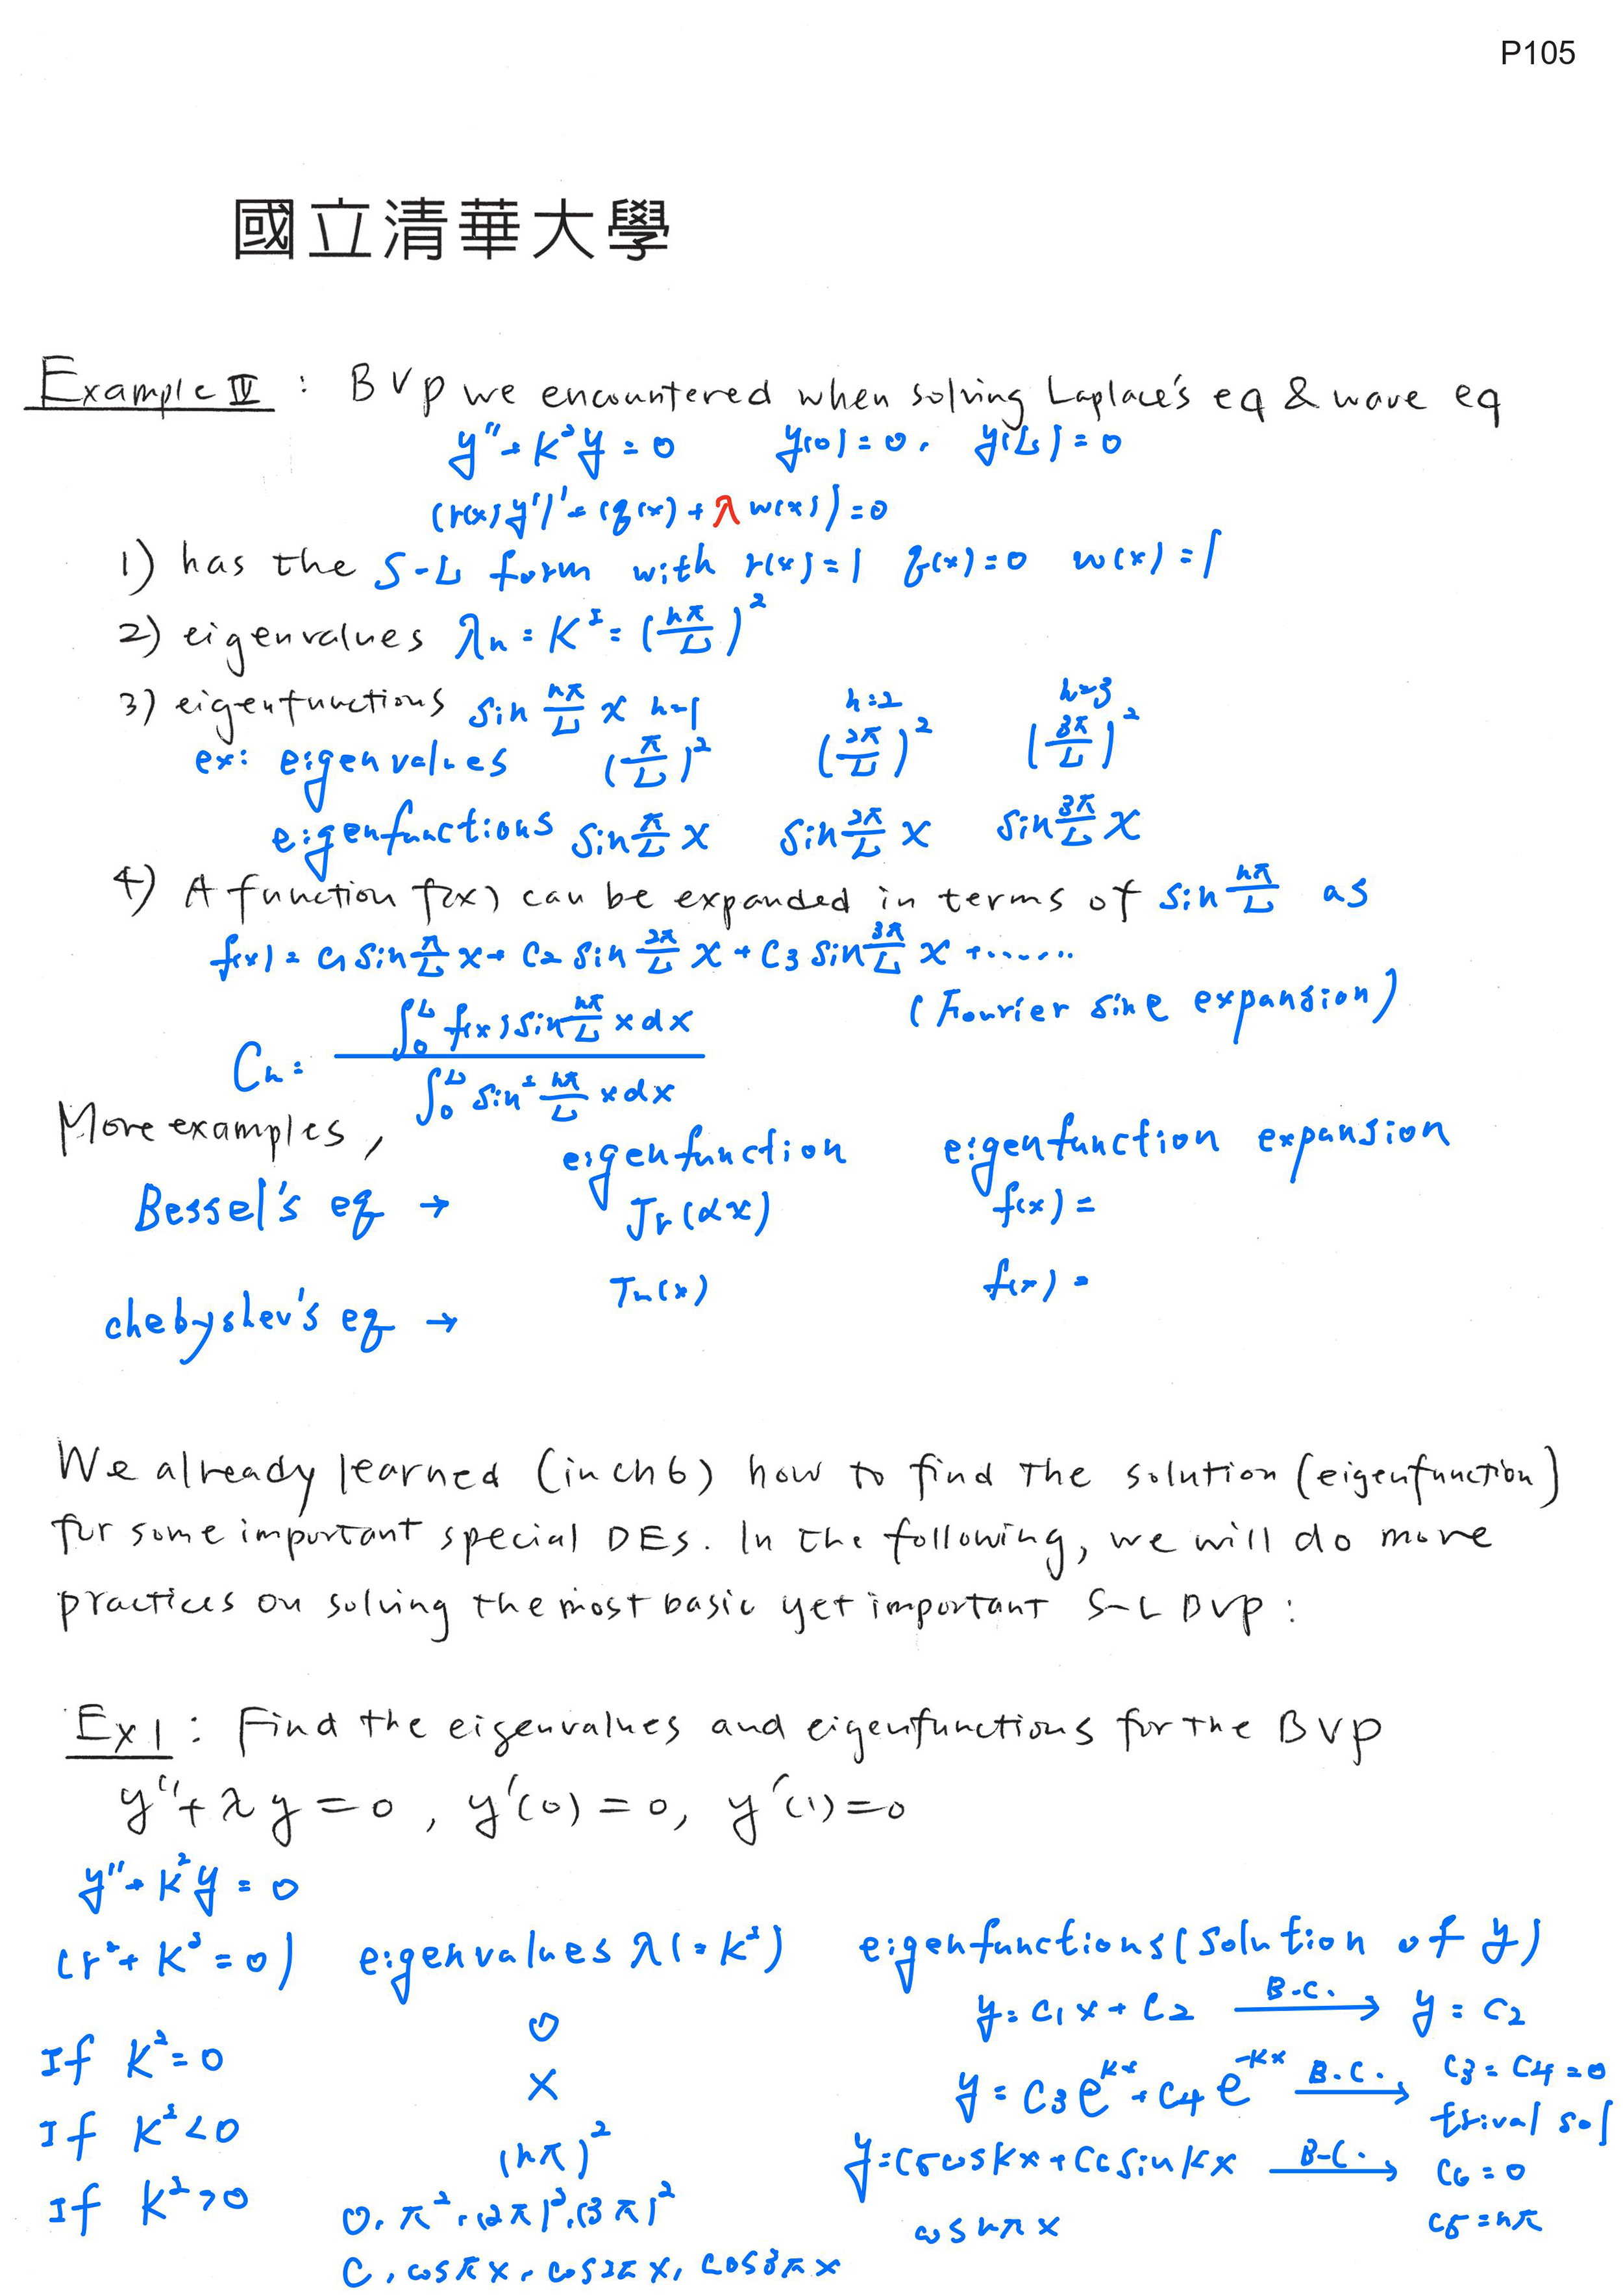 P105
國立清華大學
Example IV : BVP we encountered when solving Laplace's eq & wave eq
y'' + K²y = 0 y(0) = 0, y(L) = 0
(r(x)y')' + (q(x) + λ w(x)) = 0
1) has the S-L form with r(x) = 1 q(x) = 0 w(x) = 1
2) eigenvalues λn = K² = (nπ/L)²
3) eigenfunctions sin nπ/L x n=1 n=2 n=3
ex: eigenvalues (π/L)² (2π/L)² (3π/L)²
eigenfunctions sin π/L x sin 2π/L x sin 3π/L x
4) A function f(x) can be expanded in terms of sin nπ/L as
f(x) = c1 sin π/L x + c2 sin 2π/L x + c3 sin 3π/L x + ......
(Fourier sine expansion)
Cn = ∫₀ᴸ f(x) sin nπ/L x dx / ∫₀ᴸ sin² nπ/L x dx
More examples,
eigenfunction eigenfunction expansion
Bessel's eq → Jr(αx) f(x) =
chebyshev's eq → Tn(x) f(x) =
We already learned (in ch6) how to find the solution (eigenfunction)
for some important special DEs. In the following, we will do more
practices on solving the most basic yet important S-L BVP :
Ex 1 : Find the eigenvalues and eigenfunctions for the BVP
y'' + λy = 0, y'(0) = 0, y'(1) = 0
y'' + K²y = 0
(r² + K² = 0) eigenvalues λ(= K²) eigenfunctions (solution of y)
If K² = 0 0 y = C1x + C2 B.C. → y = C2
If K² < 0 X y = C3e^Kx + C4e^-Kx B.C. → C3 = C4 = 0
trival sol
If K² > 0 (nπ)² y = C5 cos Kx + C6 sin Kx B.C. → C6 = 0
0, π², (2π)², (3π)² cos nπx C5 = nπ
C, cos πx, cos 2πx, cos 3πx